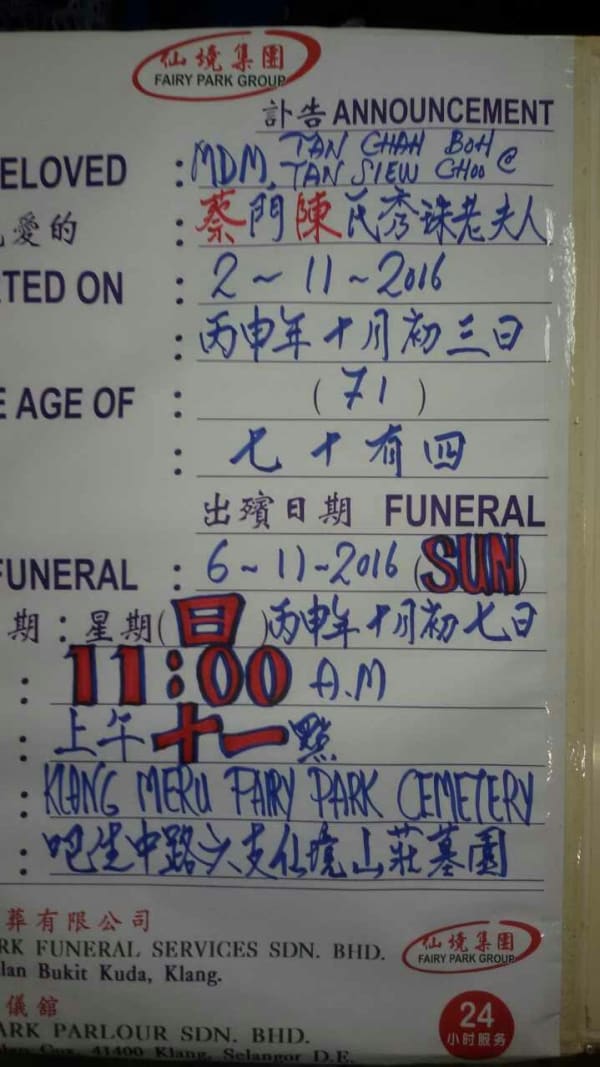 仙境集團
FAIRY PARK GROUP
訃告 ANNOUNCEMENT
ELOVED : MDM. TAN CHAH BOH @
TAN SIEW CHOO
愛的 : 蔡門陳氏秀珠老夫人
TED ON : 2 ~ 11 ~ 2016
: 丙申年十月初三日
E AGE OF : ( 71 )
: 七十有四
出殯日期 FUNERAL
FUNERAL : 6 ~ 11 ~ 2016 (SUN)
期 : 星期(日)丙申年十月初七日
: 11:00 A.M
: 上午十一點
: KLANG MERU FAIRY PARK CEMETERY
: 吧生中路六支仙境山莊墓園
葬有限公司
RK FUNERAL SERVICES SDN. BHD.
lan Bukit Kuda, Klang.
仙境集團
FAIRY PARK GROUP
儀館
ARK PARLOUR SDN. BHD.
41400 Klang, Selangor D.E.
24
小时服务